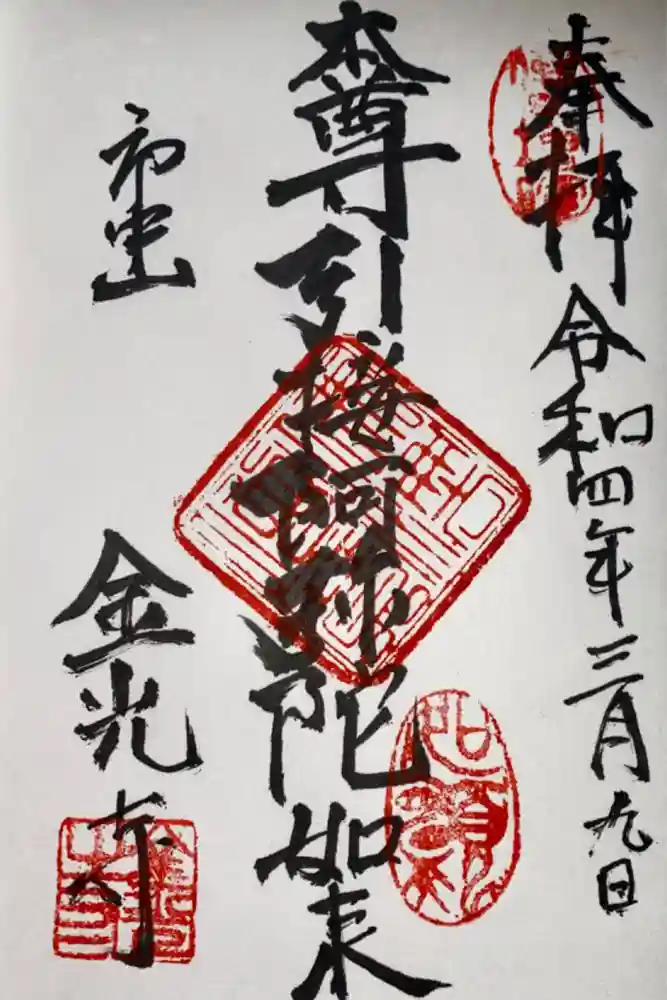 奉拝 令和四年三月九日
本尊 引接阿弥陀如来
市中山
金光寺